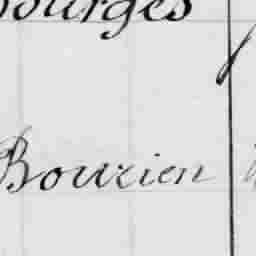 Bourges
Bourien